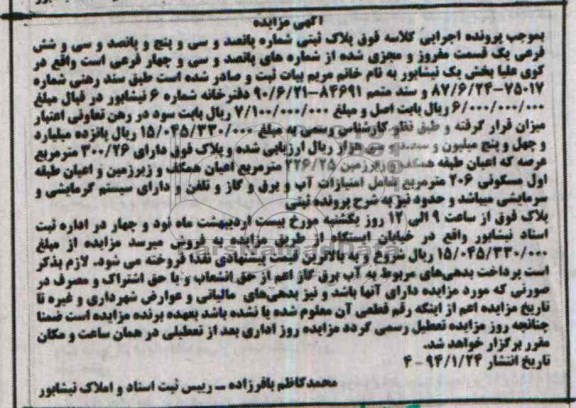 آگهی مزایده
بموجب پرونده اجرایی کلاسه فوق پلاک ثبتی شماره پانصد و سی و پنج و پانصد و سی و شش
فرعی یک قسمت مفروز و مجزی شده از شماره های پانصد و سی و چهار فرعی است واقع در
کوی علیا بخش یک نیشابور به نام خانم مریم بیات ثبت و صادر شده است طبق سند رهنی شماره
۷۵۰۱۷-۸۷/۶/۲۴ و سند متمم ۸۴۶۹۱-۹۰/۶/۲۱ دفترخانه شماره ۶ نیشابور در قبال مبلغ
۶/۰۰۰/۰۰۰/۰۰۰ ریال بابت اصل و مبلغ ۷/۱۰۰/۰۰۰/۰۰۰ ریال بابت سود در رهن تعاونی اعتبار
میزان قرار گرفته و طبق نظر کارشناس رسمی به مبلغ ۱۵/۰۴۵/۳۳۰/۰۰۰ ریال پانزده میلیارد
و چهل و پنج میلیون و سیصد و سی هزار ریال ارزیابی شده و پلاک فوق دارای ۳۰۰/۲۶ مترمربع
عرصه که اعیان طبقه همکف و زیرزمین ۲۲۶/۲۵ مترمربع اعیان همکف و زیرزمین و اعیان طبقه
اول مسکونی ۲۰۶ مترمربع شامل امتیازات آب و برق و گاز و تلفن و دارای سیستم گرمایشی و
سرمایشی میباشد و حدود نیز به شرح پرونده ثبتی
پلاک فوق از ساعت ۹ الی ۱۲ روز یکشنبه مورخ بیست اردیبهشت ماه نود و چهار در اداره ثبت
اسناد نیشابور واقع در خیابان ایستگاه از طریق مزایده به فروش میرسد مزایده از مبلغ
۱۵/۰۴۵/۳۳۰/۰۰۰ ریال شروع و به بالاترین قیمت پیشنهادی نقدا فروخته می شود. لازم بذکر
است پرداخت بدهی‌های مربوط به آب برق گاز اعم از حق انشعاب و یا حق اشتراک و مصرف در
صورتی که مورد مزایده دارای آنها باشد و نیز بدهی‌های مالیاتی و عوارض شهرداری و غیره تا
تاریخ مزایده اعم از اینکه رقم قطعی آن معلوم شده یا نشده باشد بعهده برنده مزایده است ضمنا
چنانچه روز مزایده تعطیل رسمی گردد مزایده روز اداری بعد از تعطیلی در همان ساعت و مکان
مقرر برگزار خواهد شد.
تاریخ انتشار ۹۴/۱/۲۴ - ۴
محمدکاظم باقرزاده – رییس ثبت اسناد و املاک نیشابور